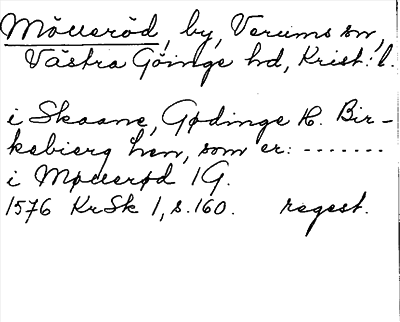 Mölleröd, by, Verums sn,
Västra Göinge hd, Krist. l.
i Skaane, Gødinge H. Bir-
kebierg len, som er: -------
i Møllerød 1G.
1576 KrSk 1, s. 160. regest.